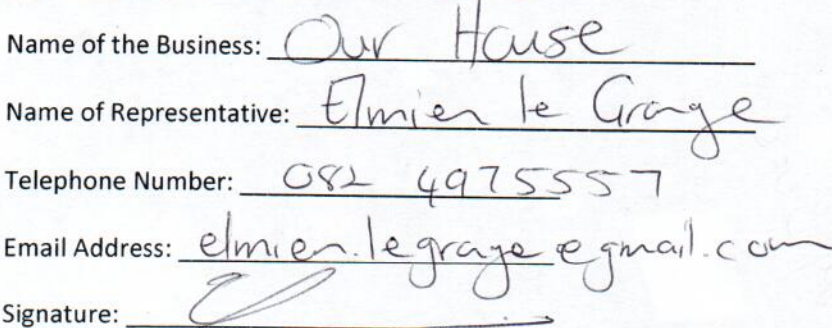 Name of the Business: Our House
Name of Representative: Elmien le Grange
Telephone Number: 082 4975557
Email Address: elmien.legrange@gmail.com
Signature: